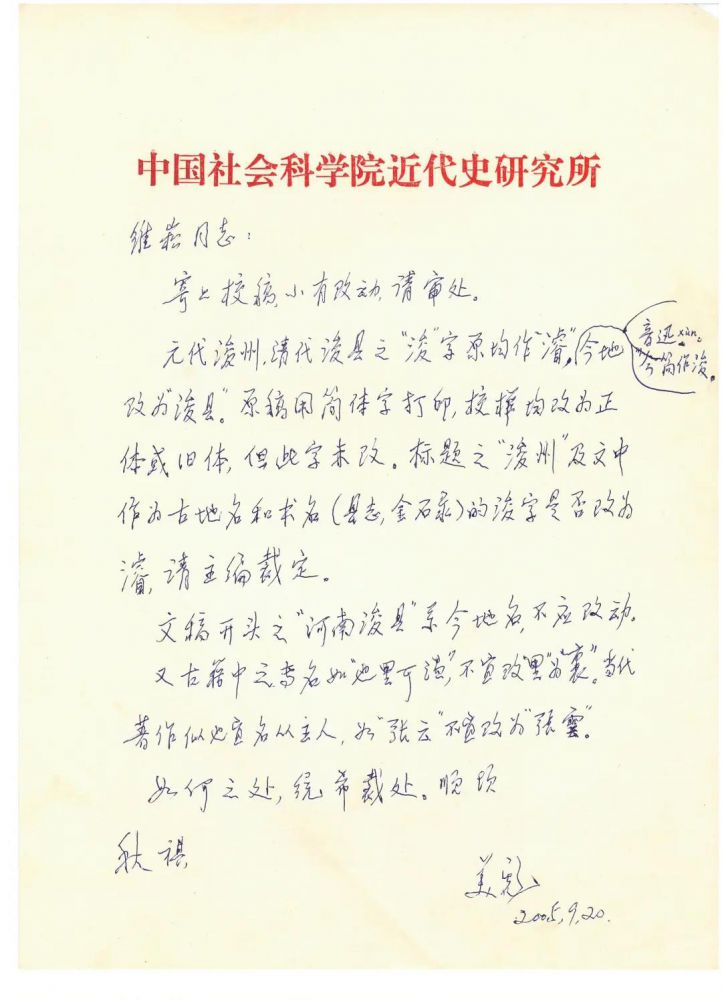 中国社会科学院近代史研究所
维崧同志：
寄上校稿,小有改动,请审处。
元代浚州,清代浚县之“浚”字原均作“濬”,今地
音迅xùn。
今简作浚。
改为“浚县”。原稿用简体字打印,校样均改为正
体或旧体,但此字未改。标题之“浚州”及文中
作为古地名和书名(县志,金石录)的浚字是否改为
濬,请主编裁定。
文稿开头之“河南浚县”系今地名,不应改动。
又古籍中之专名如“也里可温”,不宜改“里”为“裏”。当代
著作似也宜名从主人,如“张云”不宜改为“張雲”。
如何之处,统希裁处。顺颂
秋祺
美彪
2005,9,20.